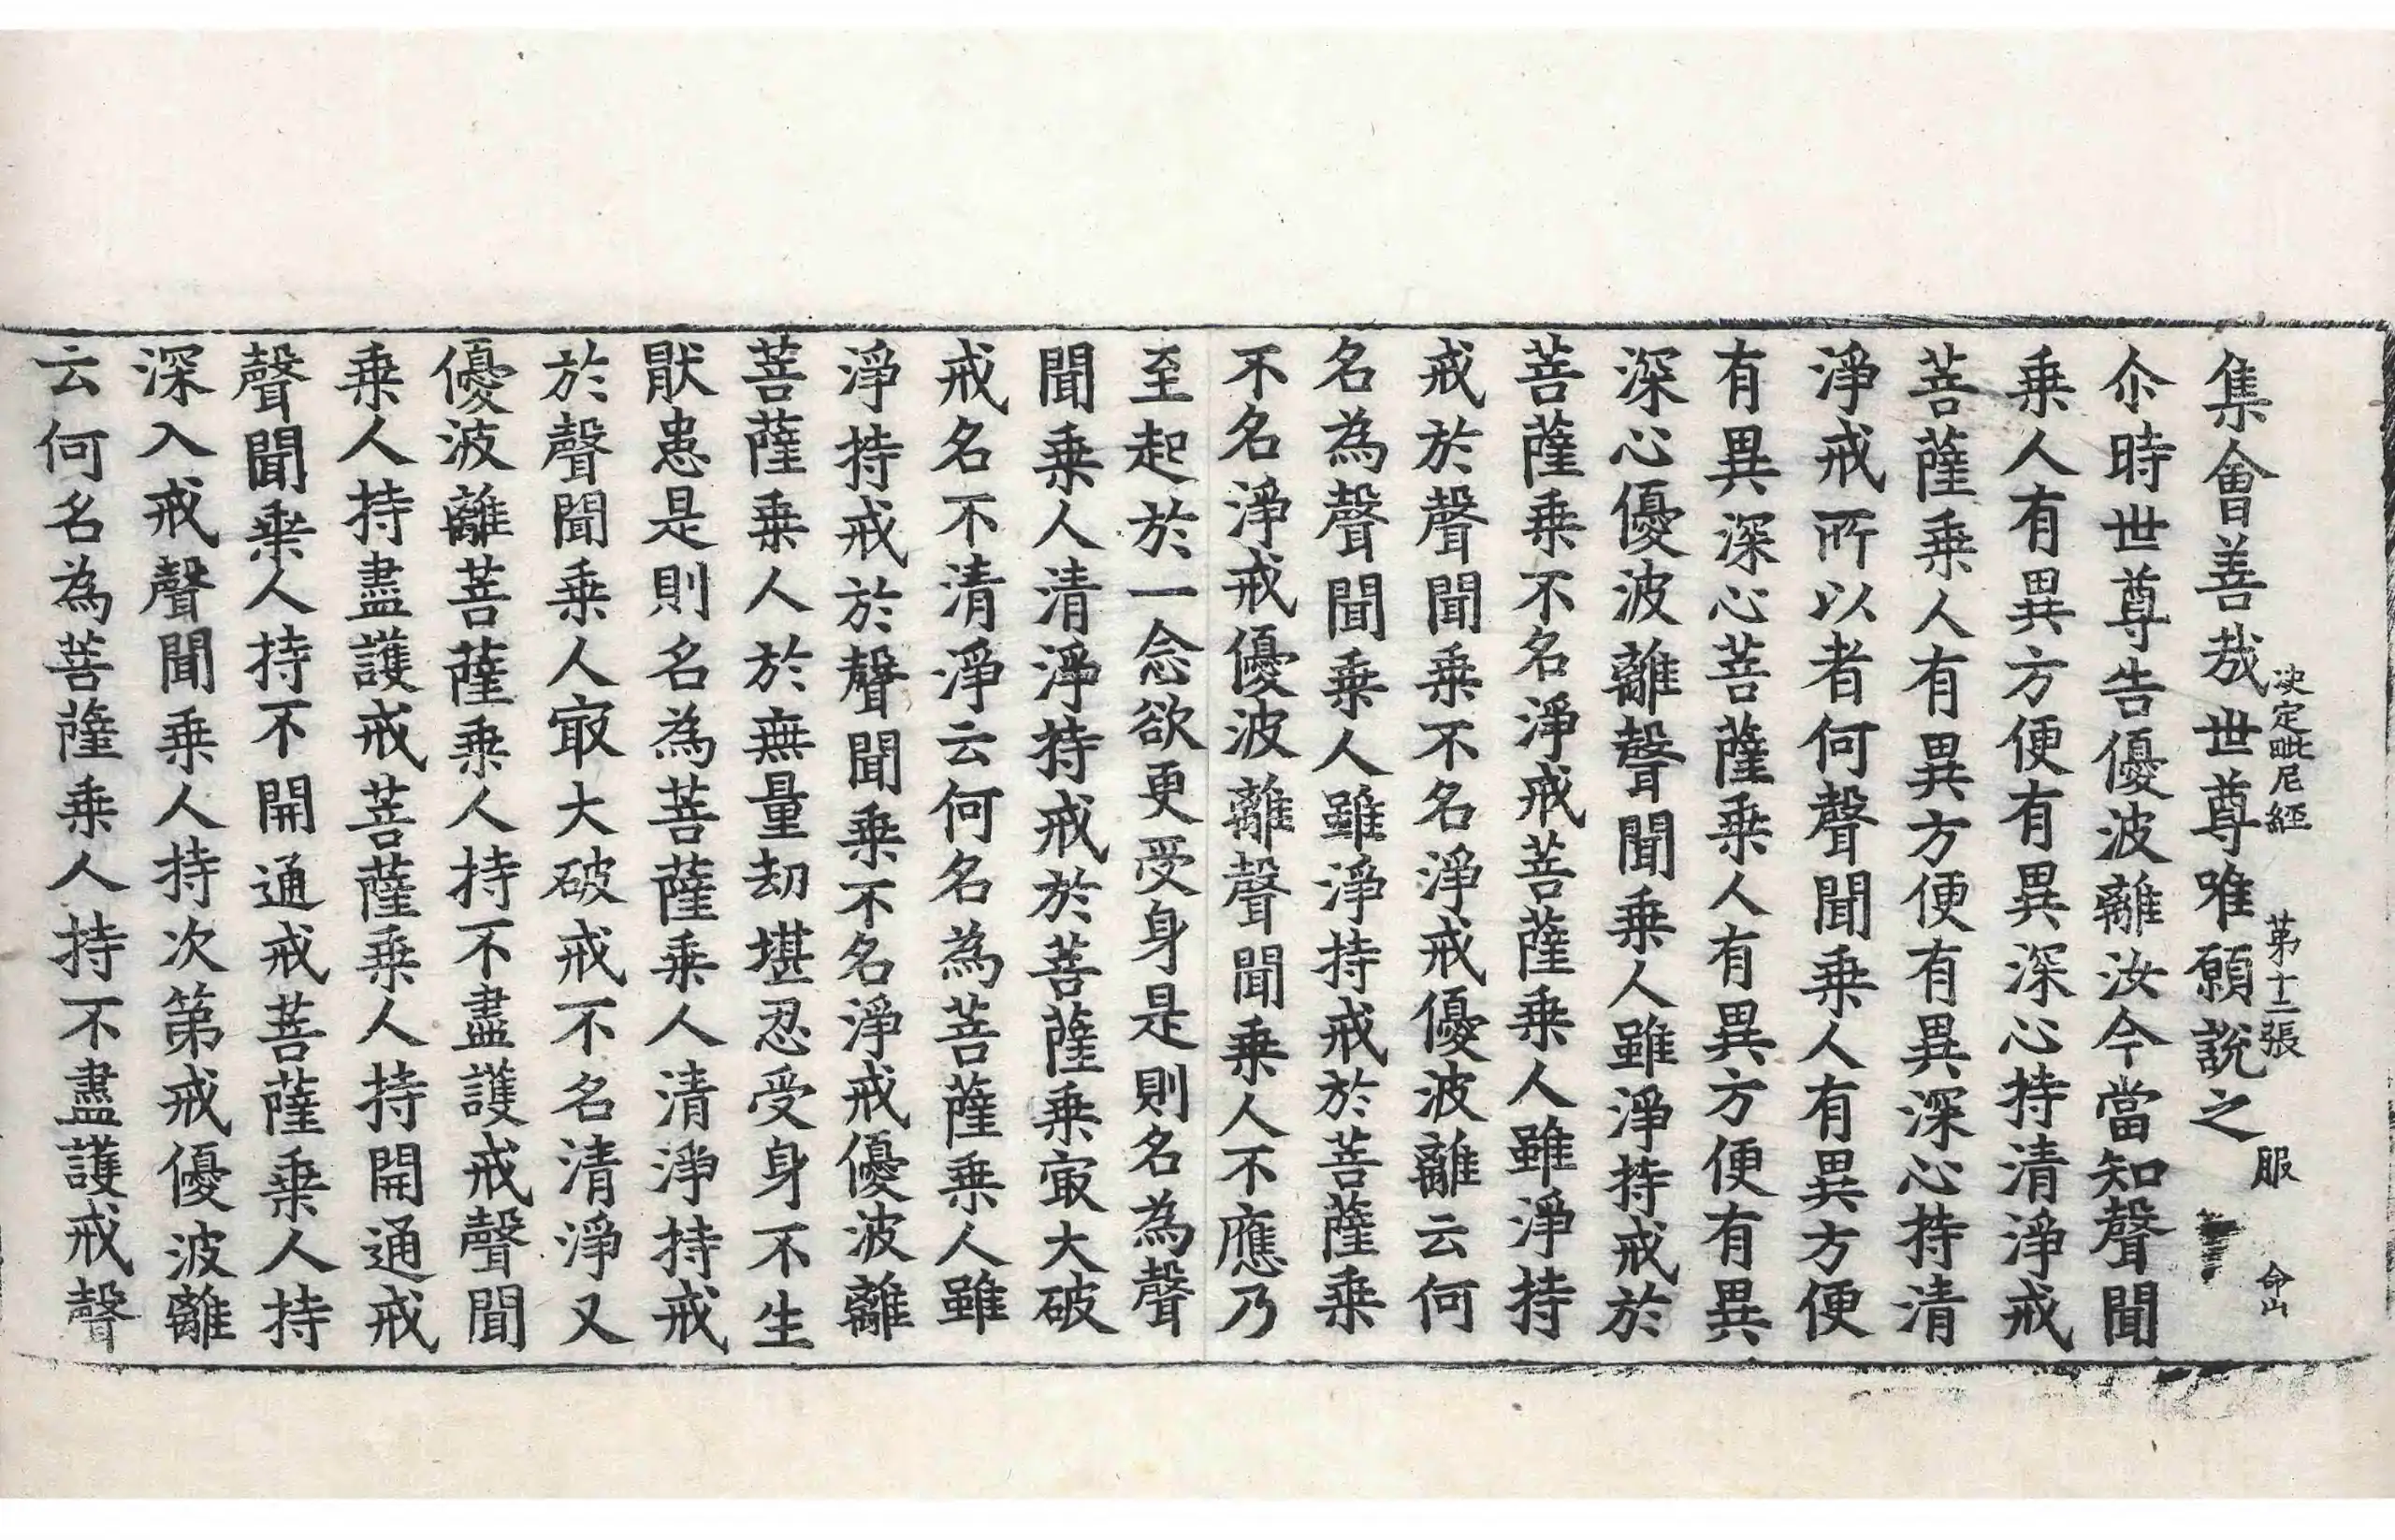 集會善哉世尊唯願說之
决定毗尼經 第十二張 服 命山
尒時世尊告優波離汝今當知聲聞
乗人有異方便有異深心持清淨戒
菩薩乗人有異方便有異深心持清
淨戒所以者何聲聞乗人有異方便
有異深心菩薩乗人有異方便有異
深心優波離聲聞乗人雖淨持戒於
菩薩乗不名淨戒菩薩乗人雖淨持
戒於聲聞乗不名淨戒優波離云何
名為聲聞乗人雖淨持戒於菩薩乗
不名淨戒優波離聲聞乗人不應乃
至起於一念欲更受身是則名為聲
聞乗人清淨持戒於菩薩乗㝡大破
戒名不清淨云何名為菩薩乗人雖
淨持戒於聲聞乗不名淨戒優波離
菩薩乗人於無量劫堪忍受身不生
猒患是則名為菩薩乗人清淨持戒
於聲聞乗人㝡大破戒不名清淨又
優波離菩薩乗人持不盡護戒聲聞
乗人持盡護戒菩薩乗人持開通戒
聲聞乗人持不開通戒菩薩乗人持
深入戒聲聞乗人持次第戒優波離
云何名為菩薩乗人持不盡護戒聲